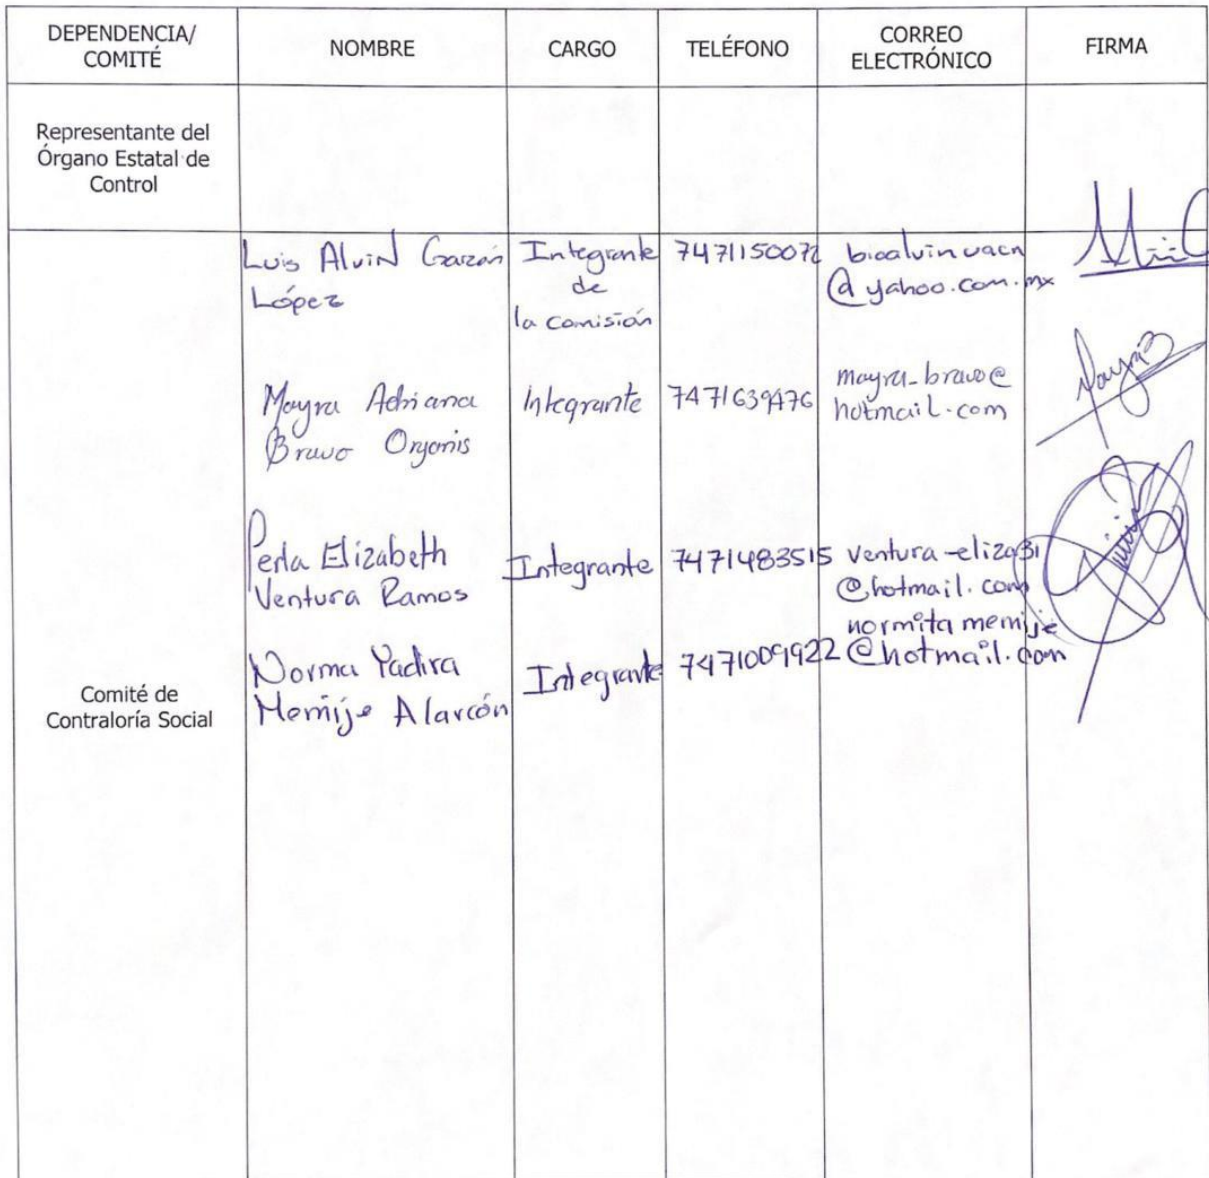 DEPENDENCIA/
COMITÉ
NOMBRE
CARGO
TELÉFONO
CORREO
ELECTRÓNICO
FIRMA
Representante del
Órgano Estatal de
Control
Comité de
Contraloría Social
Luis Alvin Garzón
López
Integrante
de
la comisión
7471150072
bioalvinuacn
@yahoo.com.mx
Mayra Adriana
Bravo
Integrante
7471639476
mayra_bravo@
hotmail.com
Perla Elizabeth
Ventura Ramos
Integrante
7471483515
ventura-eliza31
@hotmail.com
Norma Yadira
Memije Alarcón
Integrante
7471009922
normita memije
@hotmail.com